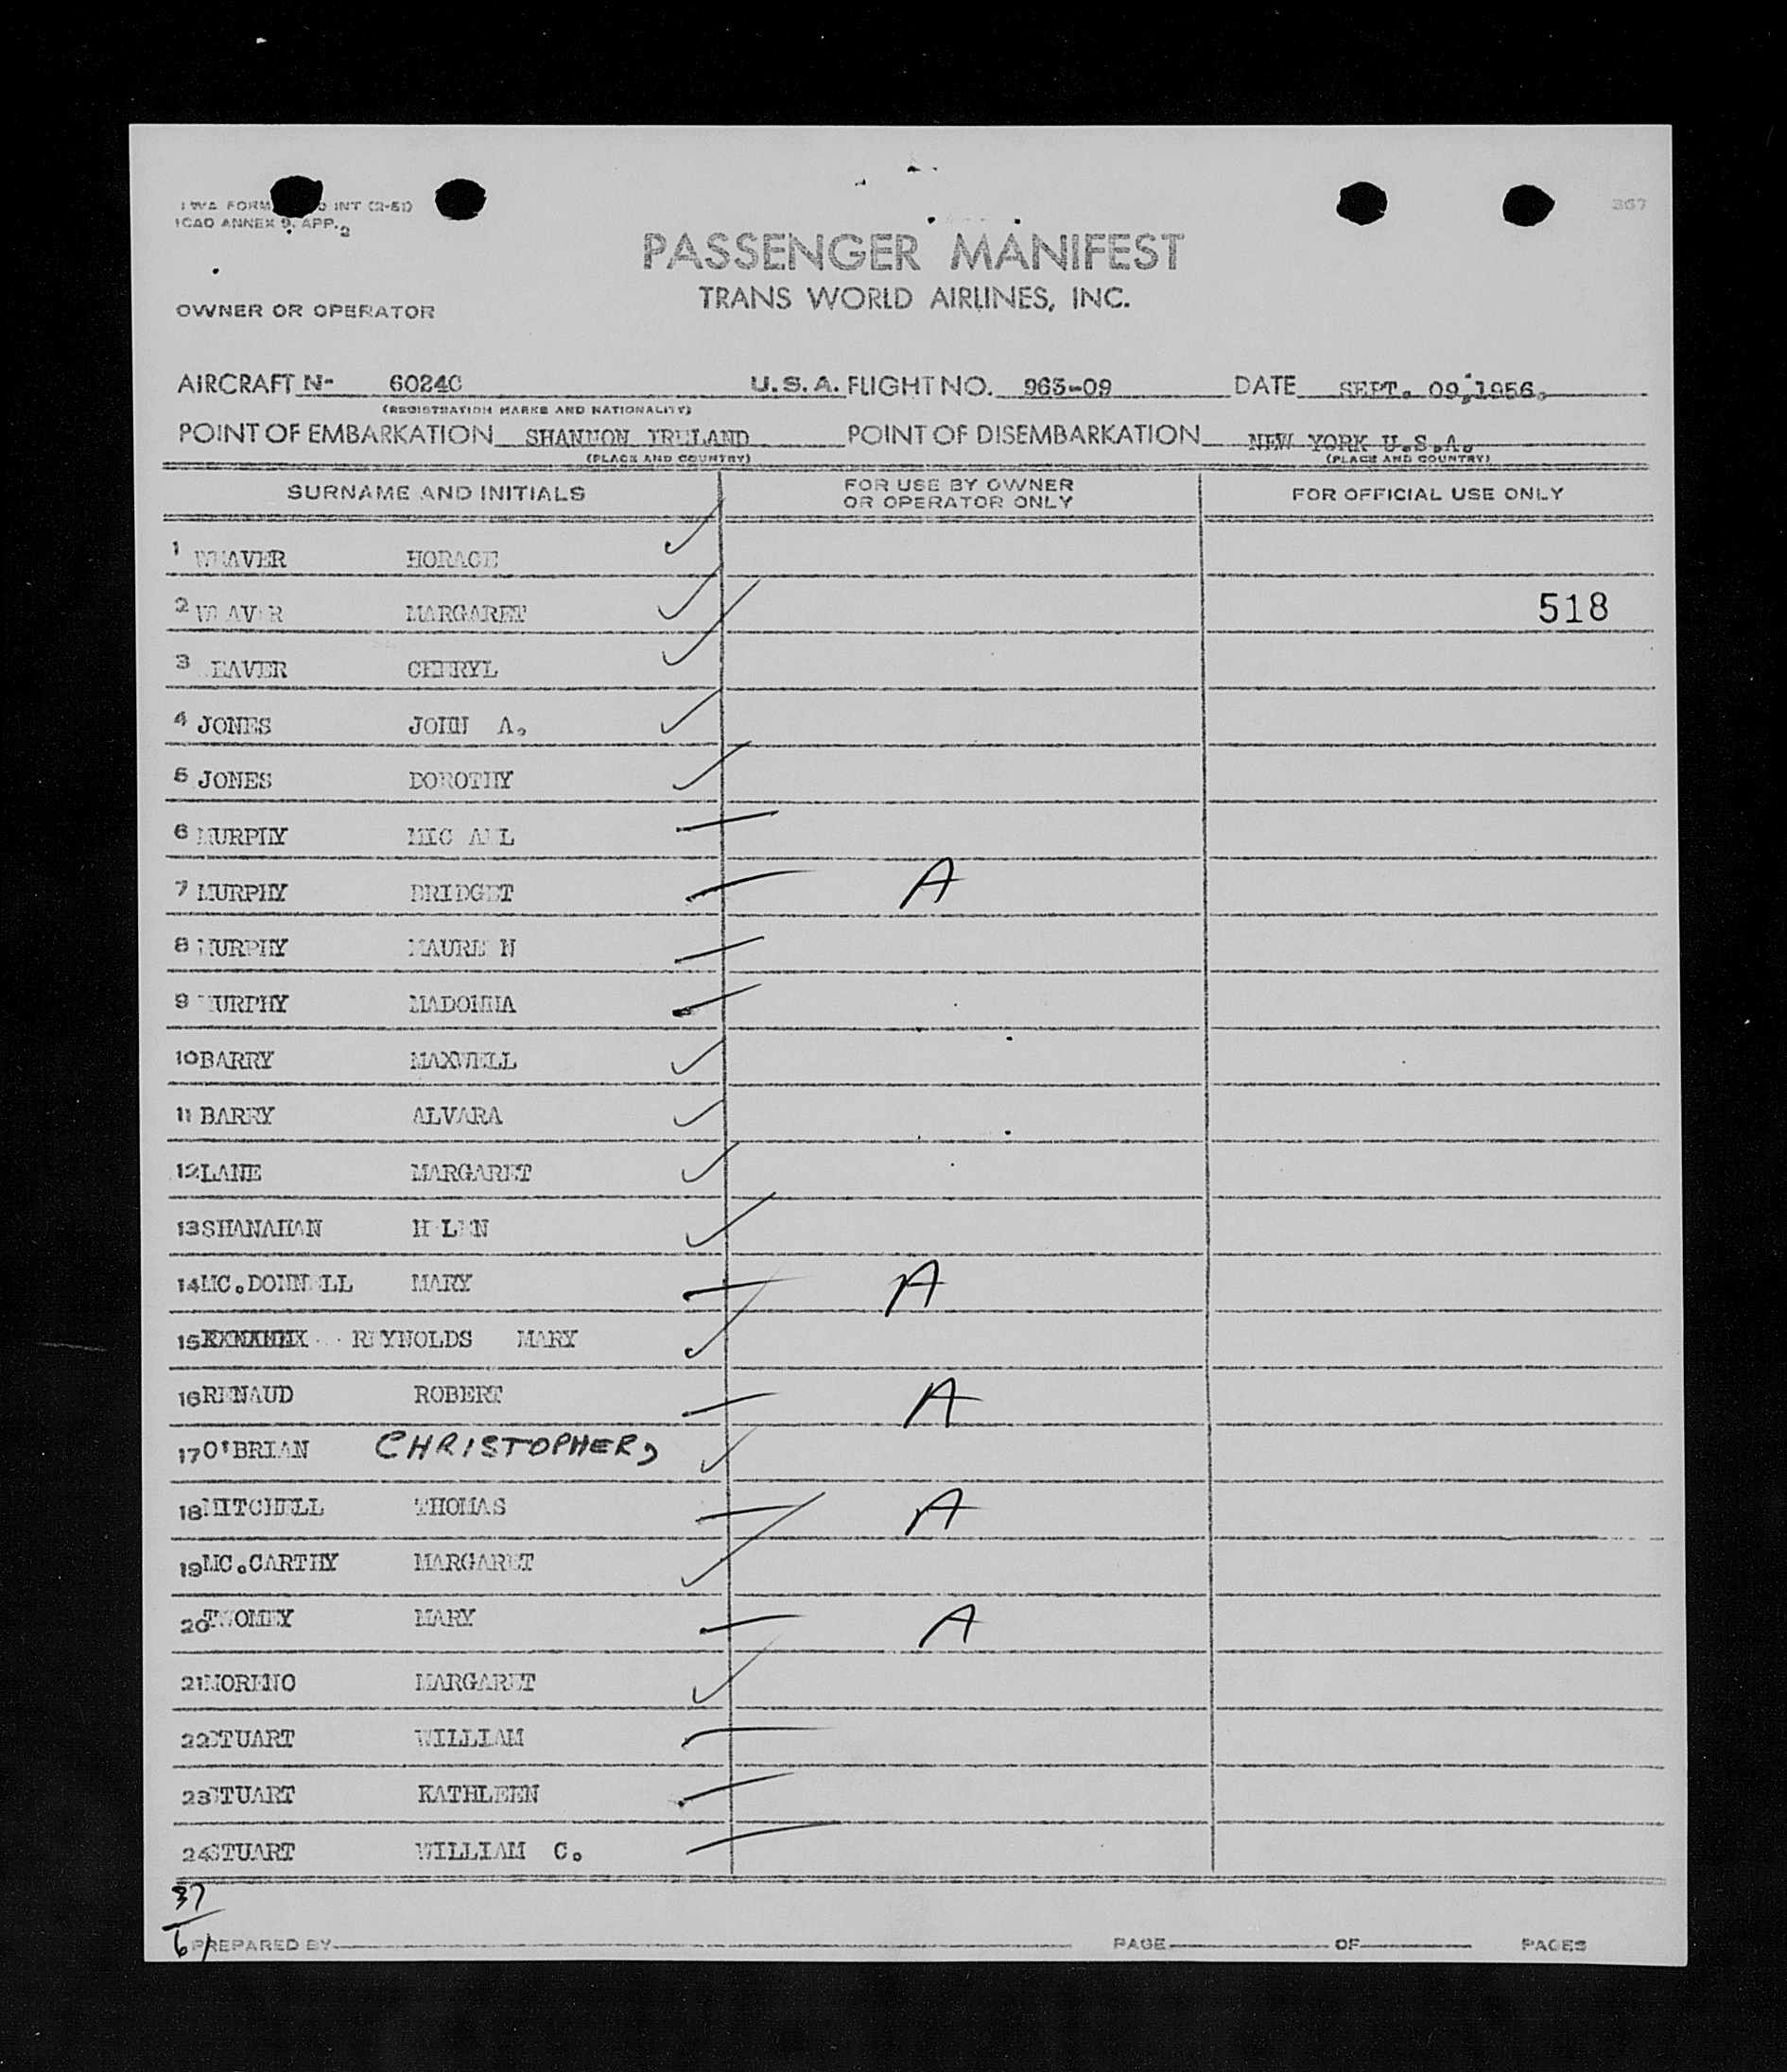 TWA FORM INT (2-51)
ICAO ANNEX 9, APP. 2
367
PASSENGER MANIFEST
TRANS WORLD AIRLINES, INC.
OWNER OR OPERATOR
AIRCRAFT N- 6024C U.S.A. FLIGHT NO. 963-09 DATE SEPT. 09,1956.
(REGISTRATION MARKS AND NATIONALITY)
POINT OF EMBARKATION SHANNON IRELAND POINT OF DISEMBARKATION NEW YORK U.S.A.
(PLACE AND COUNTRY) (PLACE AND COUNTRY)
SURNAME AND INITIALS FOR USE BY OWNER OR OPERATOR ONLY FOR OFFICIAL USE ONLY
1 WEAVER HORACE
2 WEAVER MARGARET 518
3 WEAVER CHERYL
4 JONES JOHN A.
5 JONES DOROTHY
6 MURPHY MICHAEL
7 MURPHY BRIDGET A
8 MURPHY MAUREEN
9 MURPHY MADONNA
10 BARRY MAXWELL
11 BARRY ALVARA
12 LANE MARGARET
13 SHANAHAN HELEN
14 MC.DONNELL MARY A
15 REYNOLDS MARY
16 RENAUD ROBERT A
17 O'BRIAN CHRISTOPHER,
18 MITCHELL THOMAS A
19 MC.CARTHY MARGARET
20 TWOMEY MARY A
21 MORENO MARGARET
22 STUART WILLIAM
23 STUART KATHLEEN
24 STUART WILLIAM C.
37
61
PREPARED BY PAGE OF PAGES